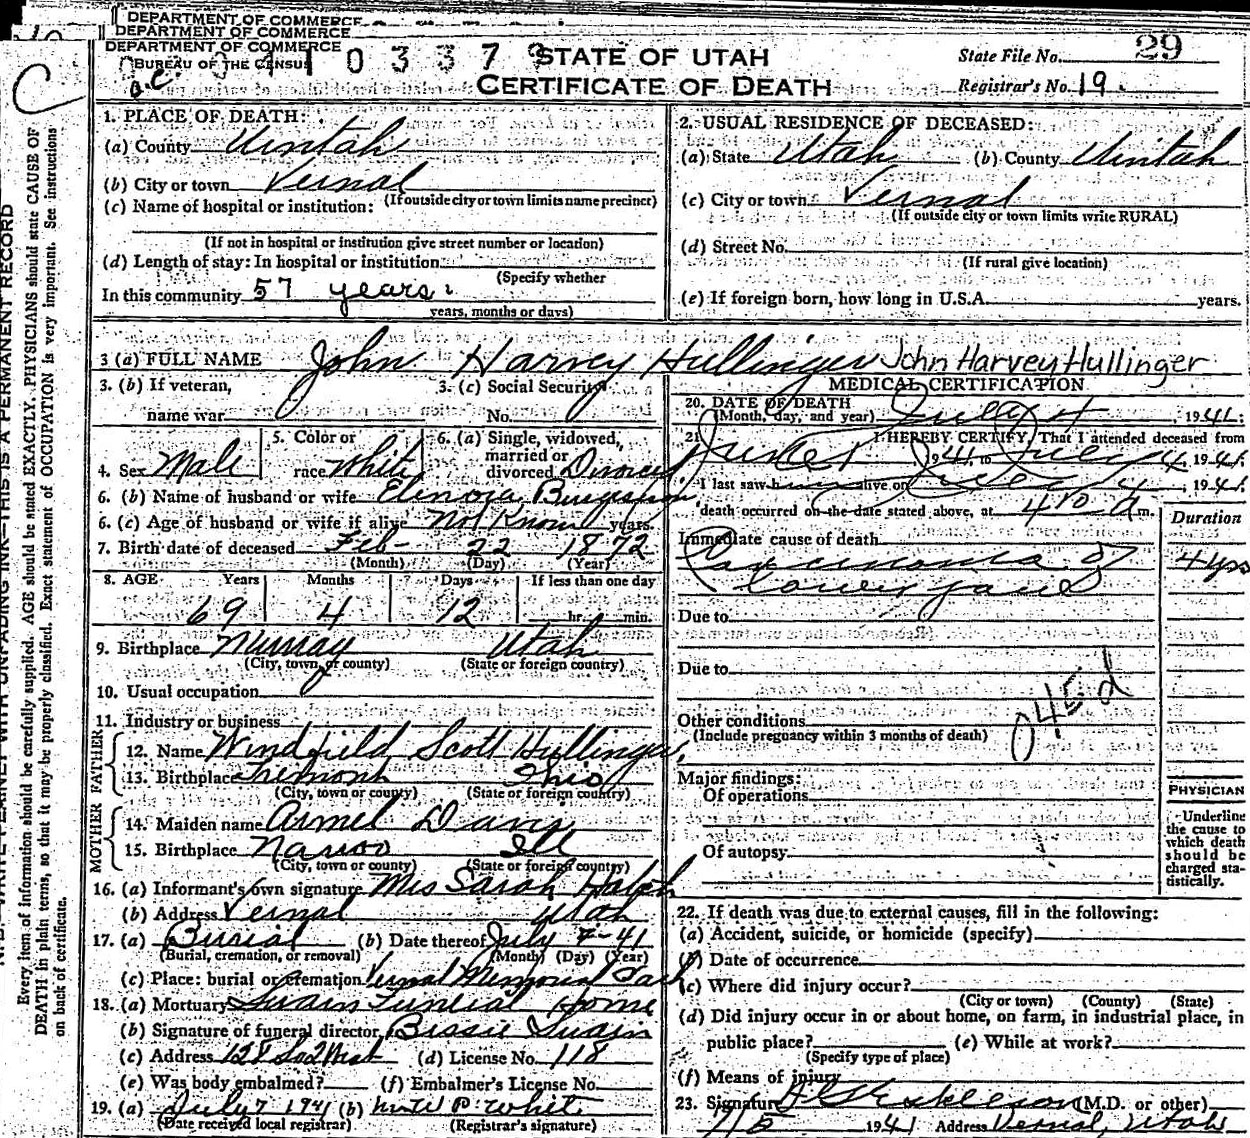 DEPARTMENT OF COMMERCE
DEPARTMENT OF COMMERCE
DEPARTMENT OF COMMERCE
BUREAU OF THE CENSUS
0 3 3 7
STATE OF UTAH
CERTIFICATE OF DEATH
State File No. 29
Registrar's No. 19
C
1. PLACE OF DEATH:
(a) County Uintah
(b) City or town Vernal
(If outside city or town limits name precinct)
(c) Name of hospital or institution:
(If not in hospital or institution give street number or location)
(d) Length of stay: In hospital or institution
(Specify whether
In this community 57 years
years, months or days)
2. USUAL RESIDENCE OF DECEASED:
(a) State Utah (b) County Uintah
(c) City or town Vernal
(If outside city or town limits write RURAL)
(d) Street No.
(If rural give location)
(e) If foreign born, how long in U.S.A. years.
3 (a) FULL NAME John Harvey Hullinger John Harvey Hullinger
3. (b) If veteran,
name war
3. (c) Social Security
No.
4. Sex Male
5. Color or
race White
6. (a) Single, widowed,
married or
divorced Divorced
6. (b) Name of husband or wife
6. (c) Age of husband or wife if alive Not Known years.
7. Birth date of deceased Feb 22 1872
(Month) (Day) (Year)
8. AGE Years Months Days If less than one day
69 4 12 hr. min.
9. Birthplace Murray Utah
(City, town, or county) (State or foreign country)
10. Usual occupation
11. Industry or business
FATHER
12. Name Windfield Scott Hullinger
13. Birthplace Tremont Ohio
(City, town or county) (State or foreign country)
MOTHER
14. Maiden name Armel Davis
15. Birthplace Nauvoo Ill
(City, town or county) (State or foreign country)
16. (a) Informant's own signature Mrs Sarah
(b) Address Vernal Utah
17. (a) Burial (b) Date thereof July 7-41
(Burial, cremation, or removal) (Month) (Day) (Year)
(c) Place: burial or cremation Vernal Memorial Park
18. (a) Mortuary Swain Funeral Home
(b) Signature of funeral director Bessie Swain
(c) Address 128 So 2 West (d) License No. 118
(e) Was body embalmed? (f) Embalmer's License No.
19. (a) July 7 1941 (b) P. White
(Date received local registrar) (Registrar's signature)
MEDICAL CERTIFICATION
20. DATE OF DEATH
(Month, day, and year) July 4, 1941.
21. I HEREBY CERTIFY, That I attended deceased from
1941, to July 4, 1941.
I last saw h alive on , 1941.
death occurred on the date stated above, at 4 10 a m.
Duration
Immediate cause of death
Carcinoma of 4 yrs
lower jaw
Due to
Due to
045d
Other conditions
(Include pregnancy within 3 months of death)
Major findings:
Of operations
Of autopsy
PHYSICIAN
Underline
the cause to
which death
should be
charged sta-
tistically.
22. If death was due to external causes, fill in the following:
(a) Accident, suicide, or homicide (specify)
(b) Date of occurrence
(c) Where did injury occur?
(City or town) (County) (State)
(d) Did injury occur in or about home, on farm, in industrial place, in
public place? (e) While at work?
(Specify type of place)
(f) Means of injury
23. Signature (M.D. or other)
7/5 1941 Address Vernal, Utah
THIS IS A PERMANENT RECORD
Every item of information should be carefully supplied. AGE should be stated EXACTLY. PHYSICIANS should state CAUSE OF
DEATH in plain terms, so that it may be properly classified. Exact statement of OCCUPATION is very important. See instructions
on back of certificate.